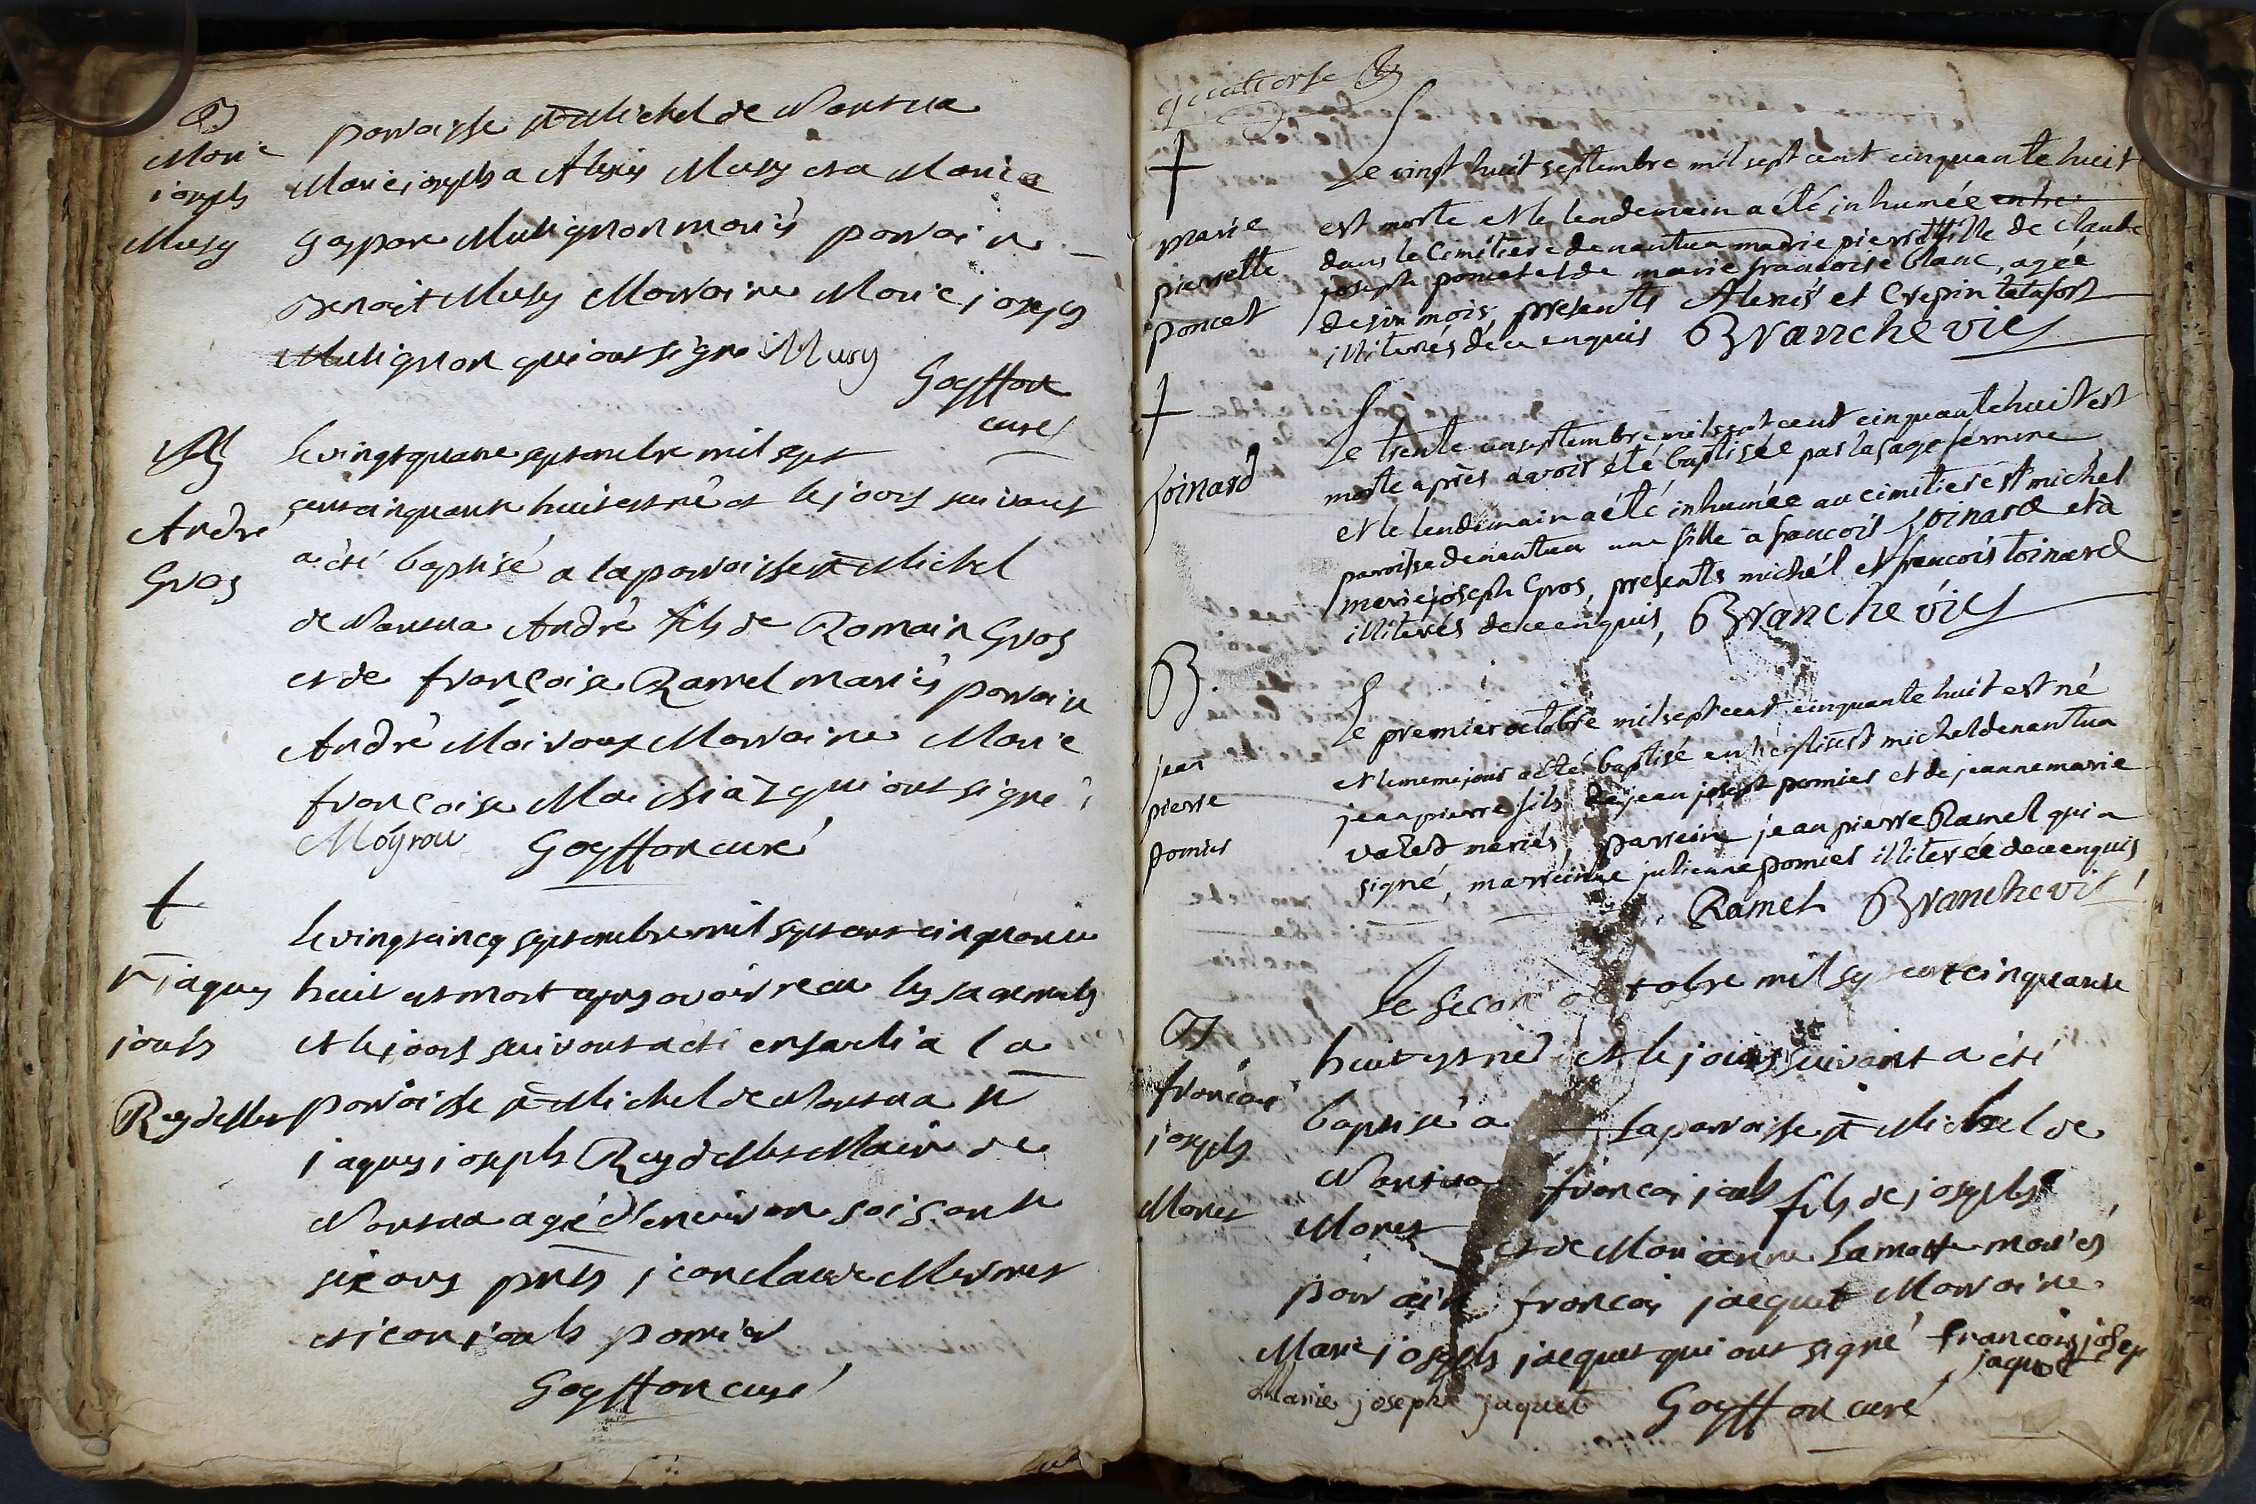 B
Marie
joseph
Musy
parroisse st Michel de Nantua
Marie joseph a Alexis Musy et a Marie
Gaspare Mulignon mariés parrain
Benoit Musy Marraine Marie joseph
Mulignon qui ont signé Musy
Goyffon
curé
B
André
Gros
le vingt quatre septembre mil sept
cent cinquante huit est né et le jours suivant
a été baptisé a la parroisse st Michel
de Nantua André fils de Romain Gros
et de françoise Ramel mariés parrain
André Marraine Marie
françoise qui ont signé
Goyffon curé
†
st jaques
josh
Reydellet
le vingt cincq septembre mil sept cent cinquante
huit est mort apres avoir recu les sacrements
et le jours suivant a été enseveli a la
parroisse st Michel de Nantua st
jaques joseph Reydellet Maire de
Nantua agé d'environ soisante
six ans pnts jean claude
et jean josh
Goyffon curé
quattorse
†
marie
pierrette
poncet
Le vingt huit septembre mil sept cent cinquante huit
est morte et le lendemain a été inhumée entre
dans le Cimétiere de nantua marie pierrette fille de claude
joseph poncet et de marie francoise blanc, agée
de six mois, presents Alexis et Crepin tetafort
illiterés de ce enquis Branchevie
†
Joinard
Le trente un septembre mil sept cent cinquante huit est
morte apres avoir été baptisée par la sage femme
et le lendemain a été inhumée au cimitiere st michel
paroisse de nantua une fille à francois Joinard et à
marie joseph Gros, presents michel et francois Joinard
illiterés de ce enquis, Branchevie
B.
jean
pierre
pomier
Le premier octobre mil sept cent cinquante huit est né
et le meme jour a été baptisé en l'eglise st michel de nantua
jean pierre fils de jean joseph pomier et de jeanne marie
valet mariés, parrain jean pierre Ramel qui a
signé, marrainne julienne pomier illiterée de ce enquis
Ramel Branchevie
B
françois
joseph
Moret
Le second octobre mil sept cent cinquante
huit est né et le jour suivant a été
baptisé a la parroisse st Michel de
Nantua françois josh fils de joseph
Moret et de Marianne Lamotte mariés
parrain françois jacquet Marraine
Marie joseph jacquet qui ont signé francois josep
jaquet
Marie joseph jaquet Goyffon curé